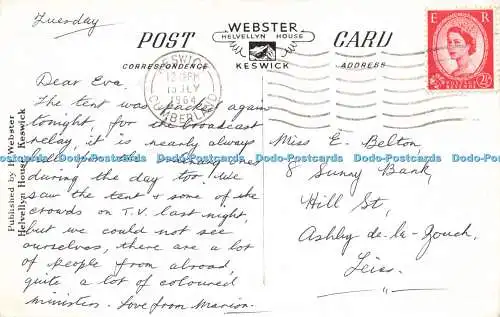 Tuesday
POST CARD
CORRESPONDENCE
ADDRESS
WEBSTER
HELVELLYN HOUSE
KESWICK
KESWICK
12 15 PM
15 JLY
1964
CUMBERLAND
E R
2½D
Published by G. Webster
Helvellyn House Keswick
Dear Eva.
The tent was packed again
tonight for the broadcast
relay, it is nearly always
full for the
during the day too. We
saw the tent & some of the
crowds on T.V. last night,
but we could not see
ourselves, there are a lot
of people from abroad,
quite a lot of coloured
ministers. Love from Marion.
Miss E. Belton,
8 Sunny Bank,
Hill St,
Ashby de-la-Zouch,
Leics.
Dodo-Postcards Dodo-Postcards Dodo-Postcards Dodo-Postcards Dodo-Postcards